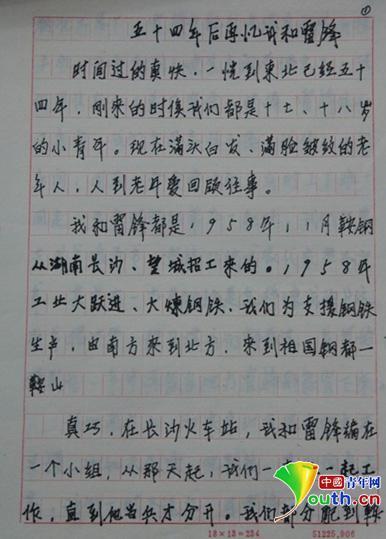 ①
五十四年后再忆我和雷锋
时间过的真快，一恍到东北已经五十
四年，刚来的时候我们都是十七、十八岁
的小青年。现在满头白发、满脸皱纹的老
年人，人到老年爱回顾往事。
我和雷锋都是1958年，11月鞍钢
从湖南长沙、望城招工来的。1958年
工业大跃进、大炼钢铁、我们为支援钢铁
生产，由南方来到北方，来到祖国钢都一
鞍山
真巧，在长沙火车站，我和雷锋编在
一个小组，从那天起，我们一直 一起工
作，直到他当兵才分开。我们部分配到鞍
18×13=234
51225.906
中国青年网
Youth.cn